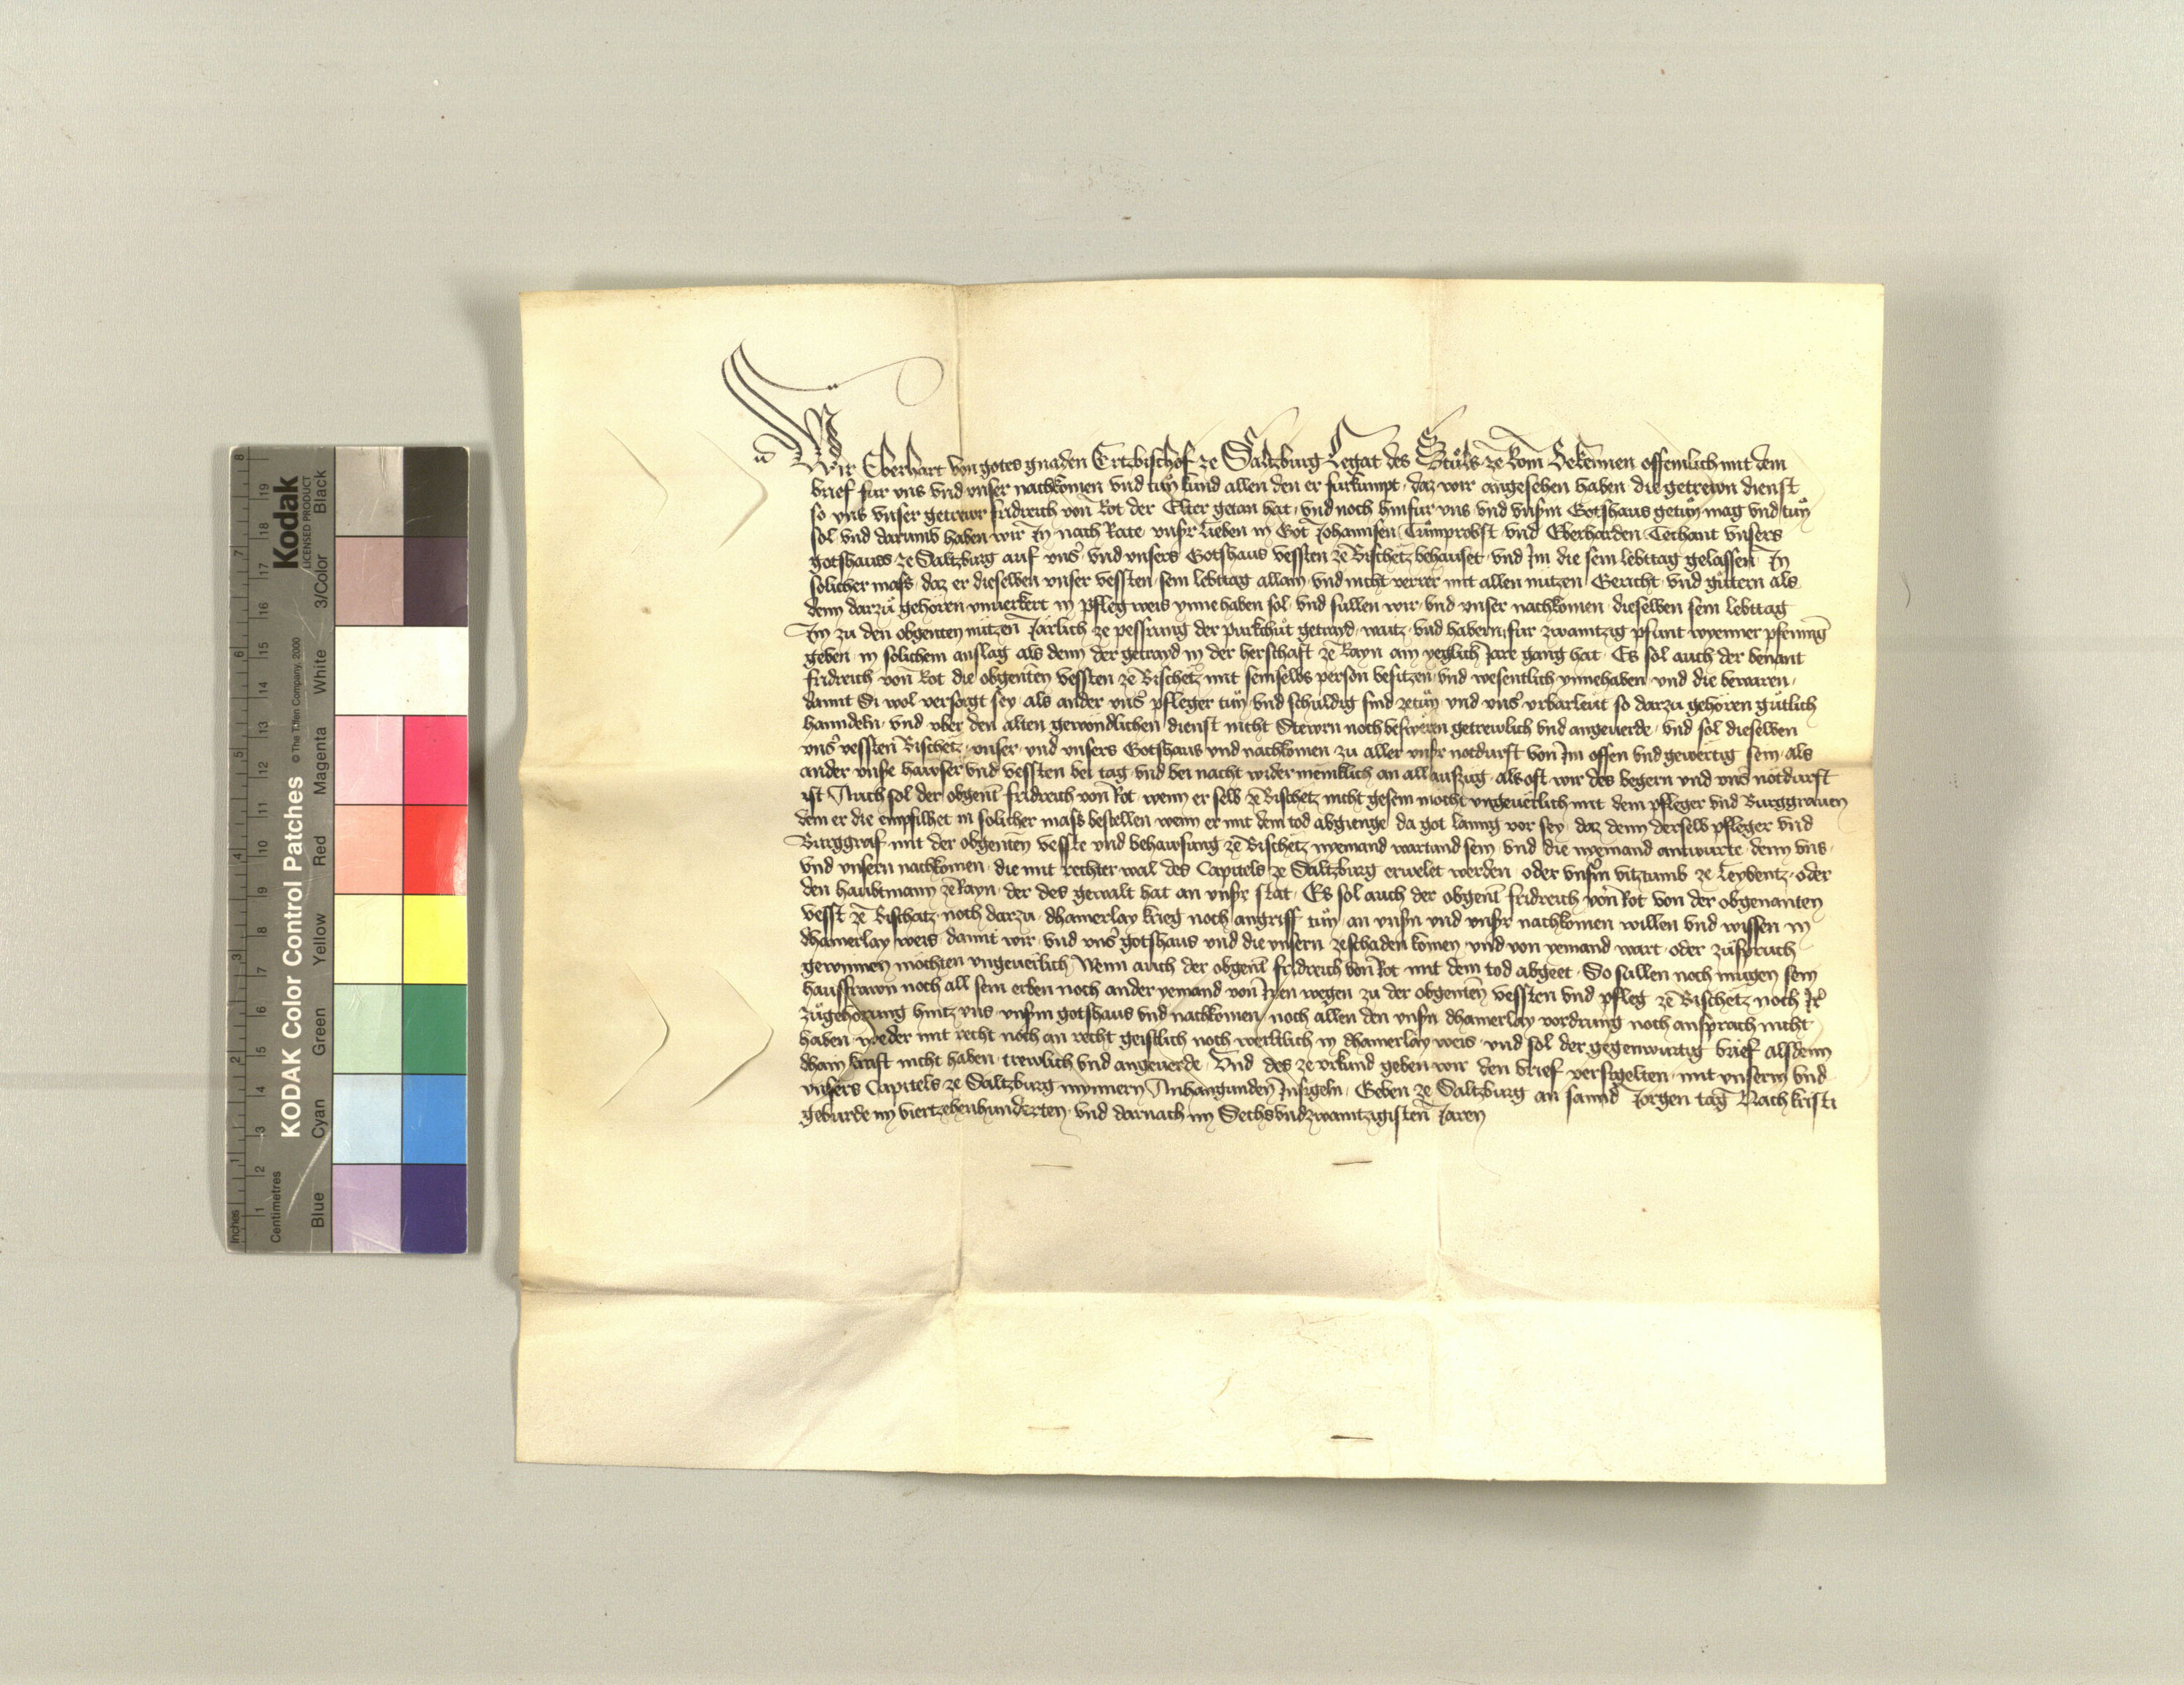 Wir Eberhart von gotes gnaden Ertzbischof ze Saltzburg Legat des Stůls ze Rom Bekennen offemlich mit dem
brief fur vns vnd vnser nachkomen vnd tůn kund allen den er furkumpt, daz wir angesehen haben die getrewn dienst
so vns vnser getrewr fridreich von Rot der Elter getan hat, vnd noch hinfur vns vnd vnsm Gotshaus getůn mag vnd tůn
sol vnd darumb haben wir In nach Rate vnsr lieben in Got Johannsen Tůmprobst vnd Eberharden Techant vnsers
gotshauss ze Saltzburg auf vns vnd vnsers Gotshaus vessten ze Bischetz behauset vnd Im die sein lebttag gelassen In
solicher mass, daz er dieselben vnser vessten sein lebttag allain vnd nicht verrer mit allen nutzen Gericht vnd gůttern als
denn darzů gehoren vnuerkert in pfleg weis ynne haben sol, vnd sullen wir vnd vnser nachkomen dieselben sein lebttag
Im zu den obgenten nutzen Jarlich ze pessrung der purkhůt getrayd, waitz vnd habern, fur zwaintzig pfunt wyenner pfening
geben in solichem anslag als denn der getrayd in der herschaft ze Rayn ain yeglich Jare gang hat, Es sol auch der benant
fridreich von Rot die obgenten vessten ze Bischetz mit seinselbs person besitzen vnd wesentlich ynnehaben vnd die bewaren,
damit Si wol versorgt sey als ander vns pfleger tůn vnd schuldig sind zetůn vnd vns vrbarleut so darzu gehoren gůtlich
hanndeln vnd vber den alten gewondlichen dienst nicht Stewrn noch beswěren getrewlich vnd angeuerde, vnd sol dieselben
vns vessten Bischetz, vnser vnd vnsers Gotshaus vnd nachkomen zu aller vnsr notdurft von Im offen vnd gewertig sein als
ander vnse hawser vnd vessten bei tag vnd bei nacht wider meniklich an all auszug, als oft wir des begern vnd vns notdurft
ist Auch sol der obgent fridreich von Rot wenn er selb ze Bischetz nicht gesein mocht vngeuerlich mit dem pfleger vnd Burggrauen
dem er die empfilhet in solicher mass bestellen wenn er mit dem tod abgienge, da got lanng vor sey, daz denn derselb pfleger vnd
Burggraf mit der obgenten vesste vnd behawsung ze Bischetz nyemand wartund sein, vnd die nyemand antwurte, denn vns,
vnd vnsern nachkomen, die mit rechter wal des Capitels ze Saltzburg erwelet werden oder vnsm vitztumb ze Leybentz, oder
den haubtmann ze Rayn, der des gewalt hat an vnsr stat, Es sol auch der obgent fridreich von Rot von der obgenanten
vesst ze Bischatz, noch darzu dhainerlay krieg noch angriff tůn, an vnsm vnd vnsr nachkomen willen vnd wissen in
dhainerlay weis, damit wir vnd vns gotshaus vnd die vnsern zeschaden komen vnd von yemand wart oder zůspruch
gewinnen mochten vngeuerlich, Wenn auch der obgent fridreich von Rot mit dem tod abgeet, So sullen noch mugen sein
hausfrawn noch all sein erben noch ander yemand von Iren wegen zu der obgenten vessten vnd pfleg ze Bischetz noch Ir
zůgehorung hintz vns vnsm gotshaus vnd nachkomen, noch allen den vnsn dhainerlay vordrung noch ansprach nicht
haben weder mit recht noch an recht geistlich noch werltlich in dhainerlay weis vnd sol der gegenwurtig brief alsdenn
dhain kraft nicht haben, trewlich vnd angeuerde, Vnd des ze vrkund geben wir den brief versigelten mit vnserm vnd
vnsers Capitels ze Saltzburg mynnern Anhangunden Insigeln, Geben ze Saltzburg an sannd Jorgen tag Nach kristi
geburde im viertzehenhunderten vnd darnach im Sechsvndzwaintzigisten Jaren
KODAK Color Control Patches © The Tiffen Company, 2000
Kodak
LICENSED PRODUCT
Inches 1 2 3 4 5 6 7 8
Centimetres 1 2 3 4 5 6 7 8 9 10 11 12 13 14 15 16 17 18 19
Blue Cyan Green Yellow Red Magenta White 3/Color Black